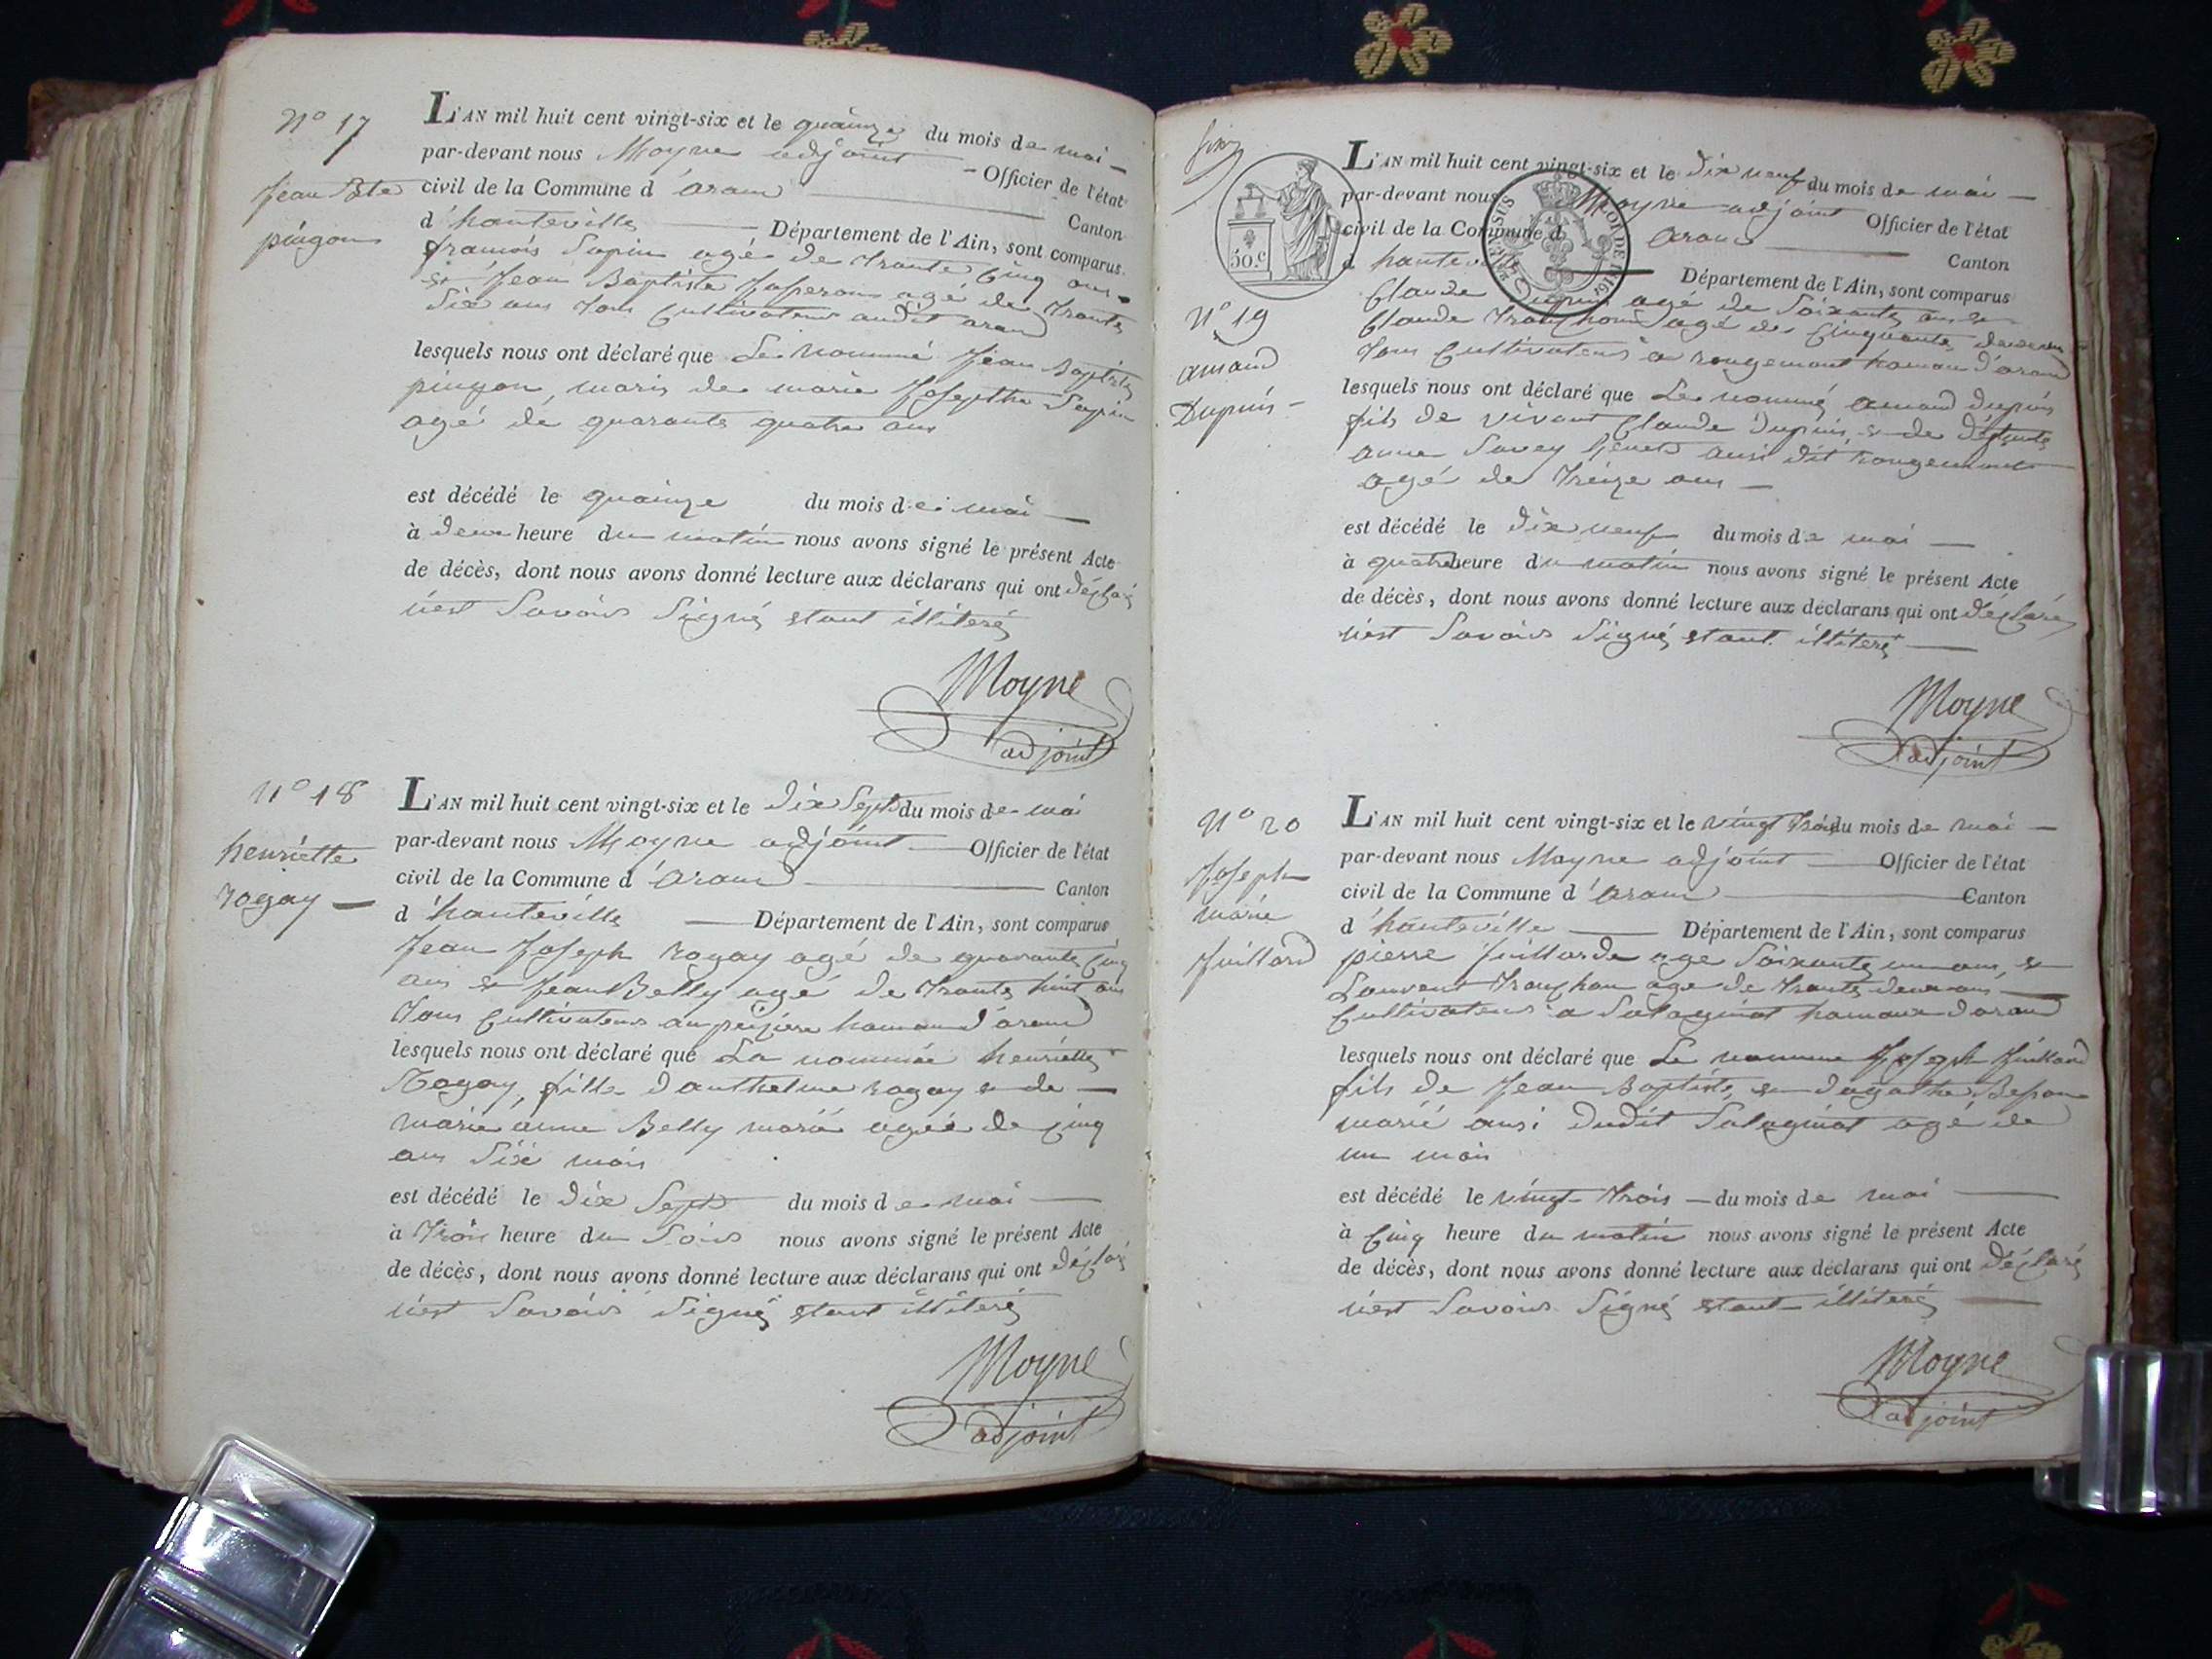 N° 17
Jean Bte
pingon
L'AN mil huit cent vingt-six et le quainze du mois de mai
par-devant nous Moyne adjoint Officier de l'état
civil de la Commune d'aran Canton
d'hauteville Département de l'Ain, sont comparus
francois Sapin agé de trante Cinq ans
et Jean Baptiste agé de trante
Six ans tous Cultivateurs audit aran
lesquels nous ont déclaré que Le nommé Jean Baptiste
pingon, maris de marie Josepthe Sapin
agé de quarante quatre ans
est décédé le quainze du mois de mai
à deux heure du matin nous avons signé le présent Acte
de décès, dont nous avons donné lecture aux déclarans qui ont déclaré
n'est Savoirs Signé etant illiteré
Moyne
adjoint
N° 18
henriette
rogay
L'AN mil huit cent vingt-six et le dix Sept du mois de mai
par-devant nous Moyne adjoint Officier de l'état
civil de la Commune d'aran Canton
d'hauteville Département de l'Ain, sont comparus
Jean Joseph rogay agé de quarante Cinq
ans et Jean Belly agé de trante huit ans
tous Cultivateurs au hamau d'aran
lesquels nous ont déclaré que La nommée henriette
Rogay, fille d'anthelme rogay et de
marie anne Belly marié agée de Cinq
ans Six mois
est décédé le dix Sept du mois de mai
à trois heure du Soirs nous avons signé le présent Acte
de décès, dont nous avons donné lecture aux déclarans qui ont déclaré
n'est Savoirs Signé etant illiteré
Moyne
adjoint
50.c
N° 19
amand
Dupuis
L'AN mil huit cent vingt-six et le dix neuf du mois de mai
par-devant nous Moyne adjoint Officier de l'état
civil de la Commune d' aran Canton
d' hauteville Département de l'Ain, sont comparus
Claude Dupuis agé de Soixante ans et
Claude tronchon agé de Cinquante deux ans
tous Cultivateurs a rougemont hamau d'aran
lesquels nous ont déclaré que Le nommé amand dupuis
fils de vivant Claude Dupuis et de défunte
anne Savey ausi dit rougemont
agé de treize ans
est décédé le dix neuf du mois de mai
à quatre heure du matin nous avons signé le présent Acte
de décès, dont nous avons donné lecture aux déclarans qui ont déclaré
n'est Savoirs Signé etant illiteré
Moyne
adjoint
N° 20
Joseph
marie
Juillard
L'AN mil huit cent vingt-six et le vingt trois du mois de mai
par-devant nous Moyne adjoint Officier de l'état
civil de la Commune d'aran Canton
d'hauteville Département de l'Ain, sont comparus
pierre Juillarde age Soixante un ans, et
Laurent tronchon age de trante deux ans
Cultivateurs a Salaginat hamaux d aran
lesquels nous ont déclaré que Le nomme Joseph Juillard
fils de Jean Baptiste, et d agathe
marié ausi dudit Salaginat agé de
un mois
est décédé le vingt trois du mois de mai
à Cinq heure du matin nous avons signé le présent Acte
de décès, dont nous avons donné lecture aux déclarans qui ont déclaré
n'est Savoirs Signé etant illiteré
Moyne
adjoint